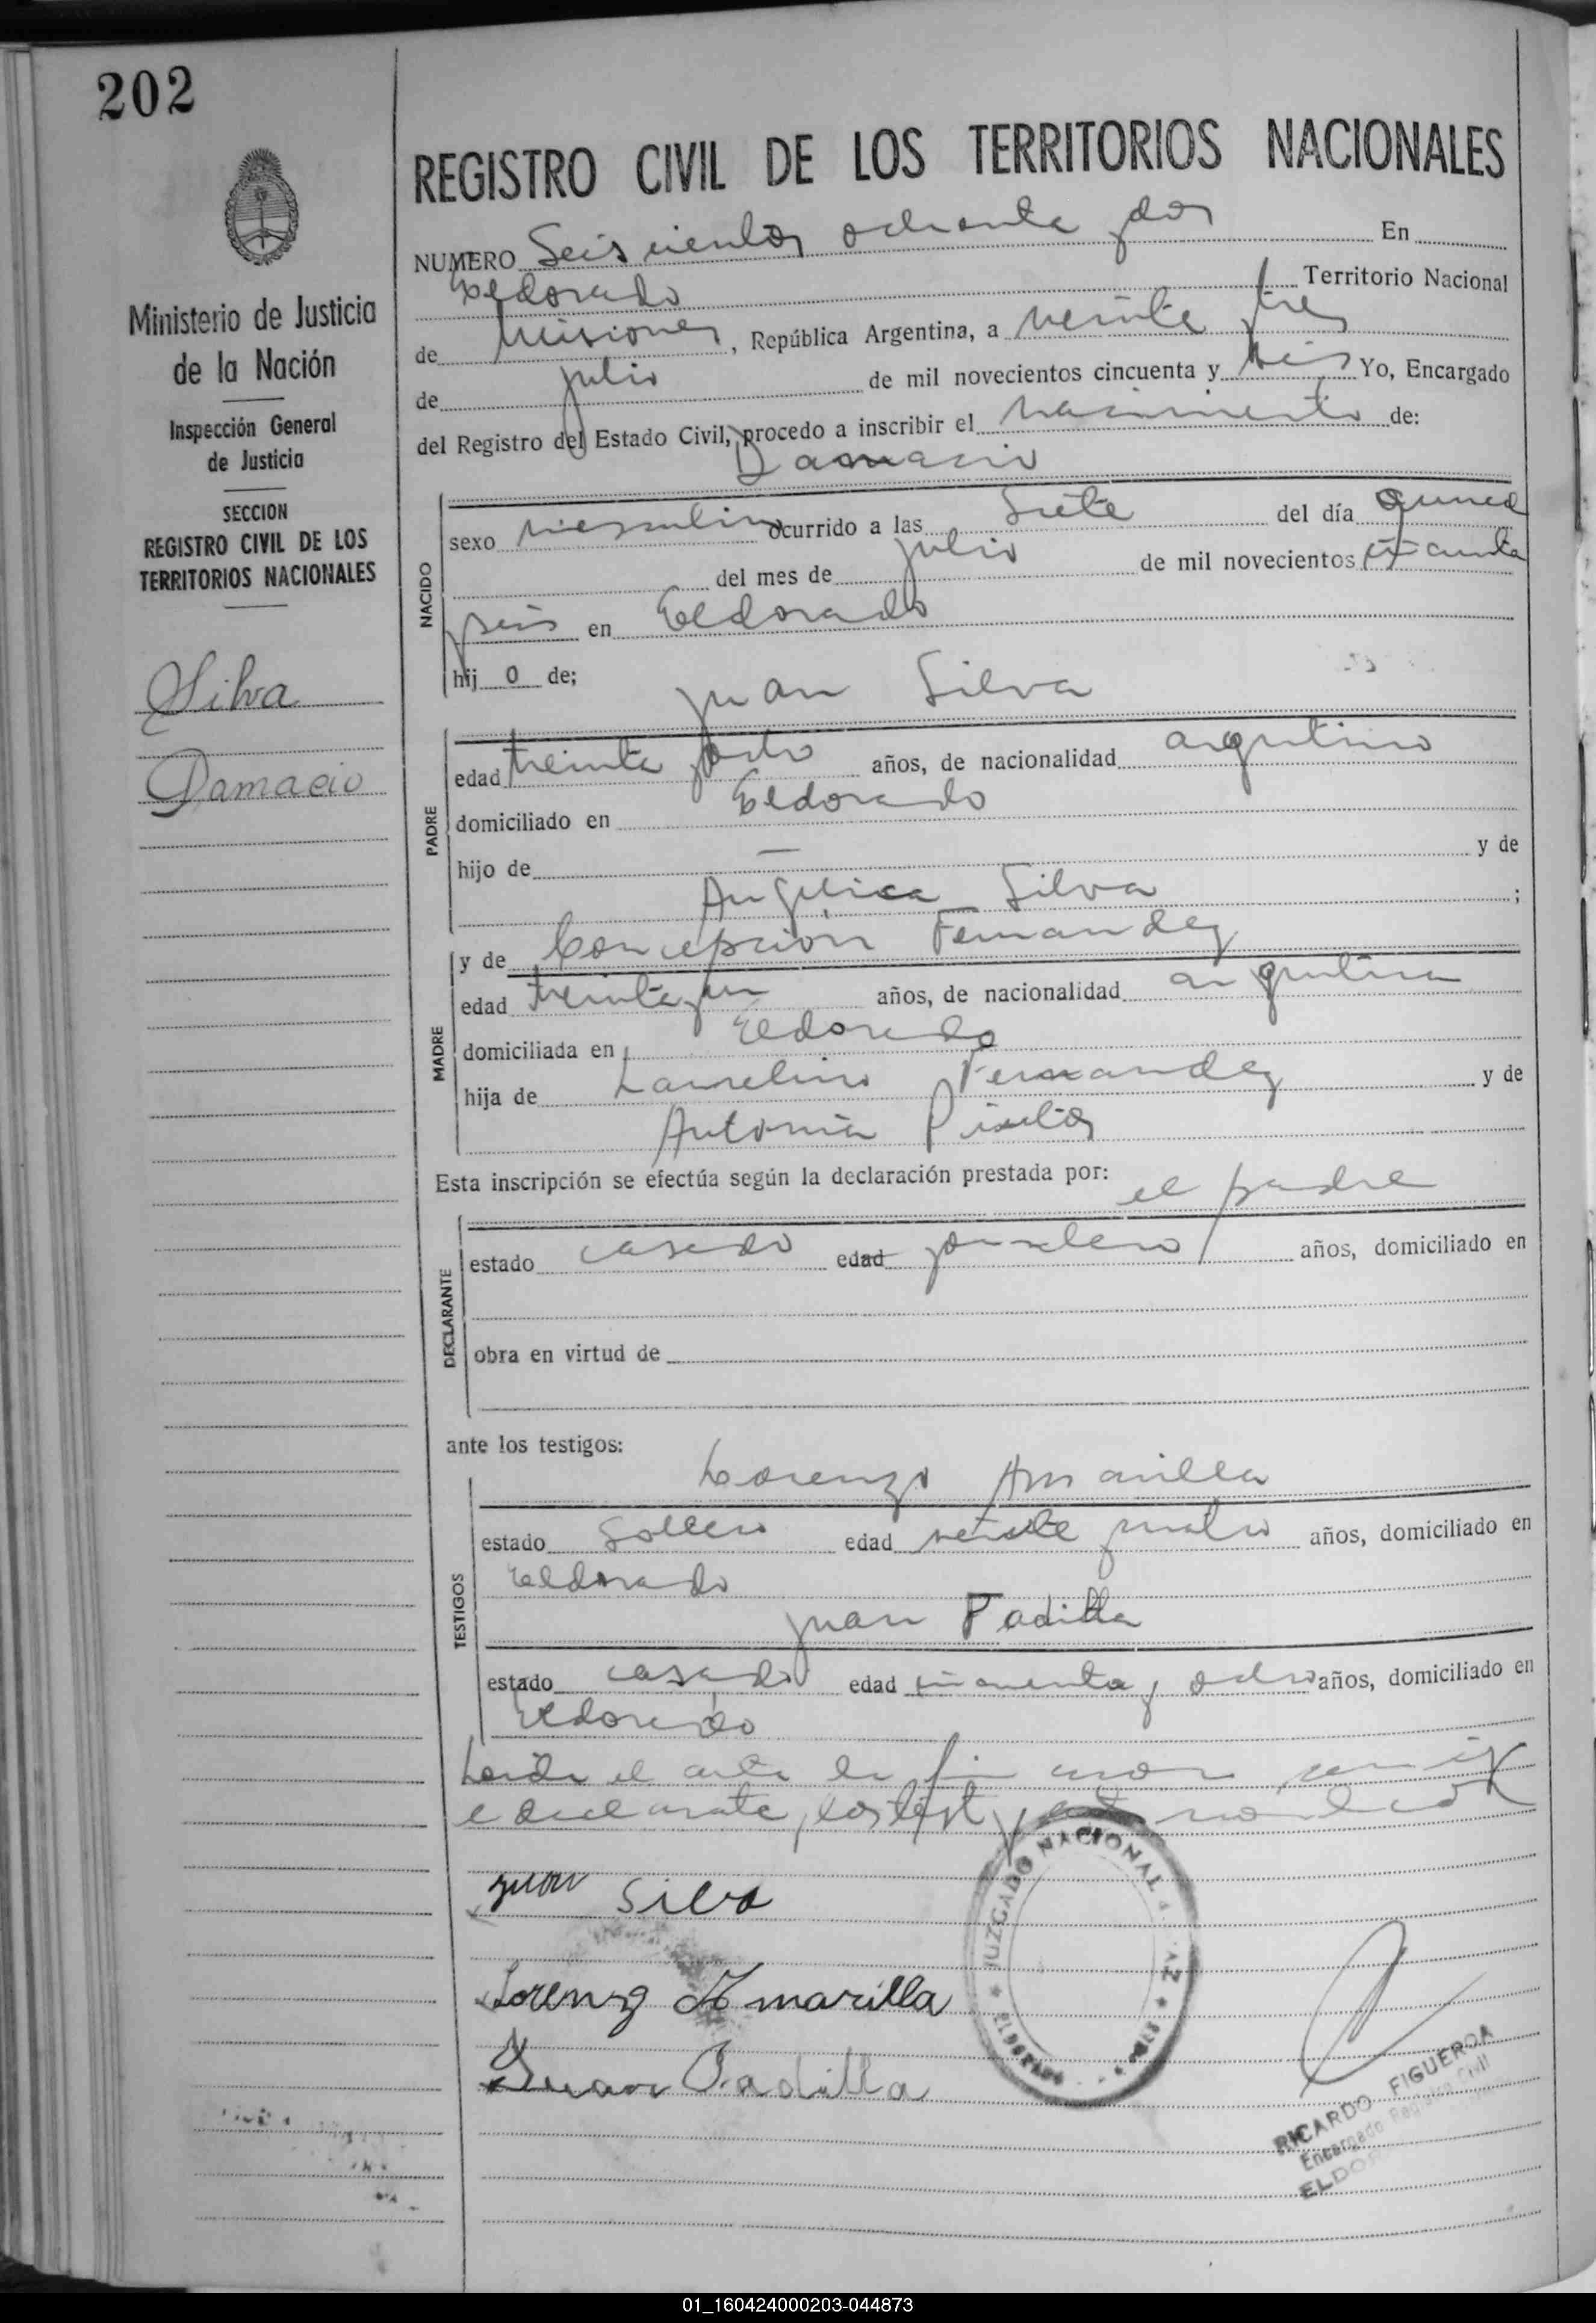 202
REGISTRO CIVIL DE LOS TERRITORIOS NACIONALES
NUMERO Seiscientos ochenta y dos En
Eldorado Territorio Nacional
de Misiones, República Argentina, a veinte y tres
de julio de mil novecientos cincuenta y seis Yo, Encargado
del Registro del Estado Civil, procedo a inscribir el nacimiento de:
Damacio
Ministerio de Justicia
de la Nación
Inspección General
de Justicia
SECCION
REGISTRO CIVIL DE LOS
TERRITORIOS NACIONALES
Silva
Damacio
NACIDO
sexo masculino ocurrido a las Siete del día quince
del mes de julio de mil novecientos cincuenta
y seis en Eldorado
hij o de;
Juan Silva
PADRE
edad treinta y ocho años, de nacionalidad argentino
domiciliado en Eldorado
hijo de — y de
Angélica Silva ;
y de Concepción Fernandez
MADRE
edad treinta y un años, de nacionalidad argentina
domiciliada en Eldorado
hija de Fernandez y de
Antonia
Esta inscripción se efectúa según la declaración prestada por:
el padre
DECLARANTE
estado casado edad jornalero años, domiciliado en
obra en virtud de
ante los testigos:
Lorenzo Amarilla
TESTIGOS
estado Soltero edad veinte y cuatro años, domiciliado en
Eldorado
Juan Padilla
estado casado edad cincuenta y ocho años, domiciliado en
Eldorado
Leida el acta la firman conmigo
el declarante, los test y
Juan Silva
Lorenzo Amarilla
Juan Padilla
JUZGADO NACIONAL
ELDORADO
RICARDO FIGUEROA
Encargado Registro Civil
01_160424000203-044873